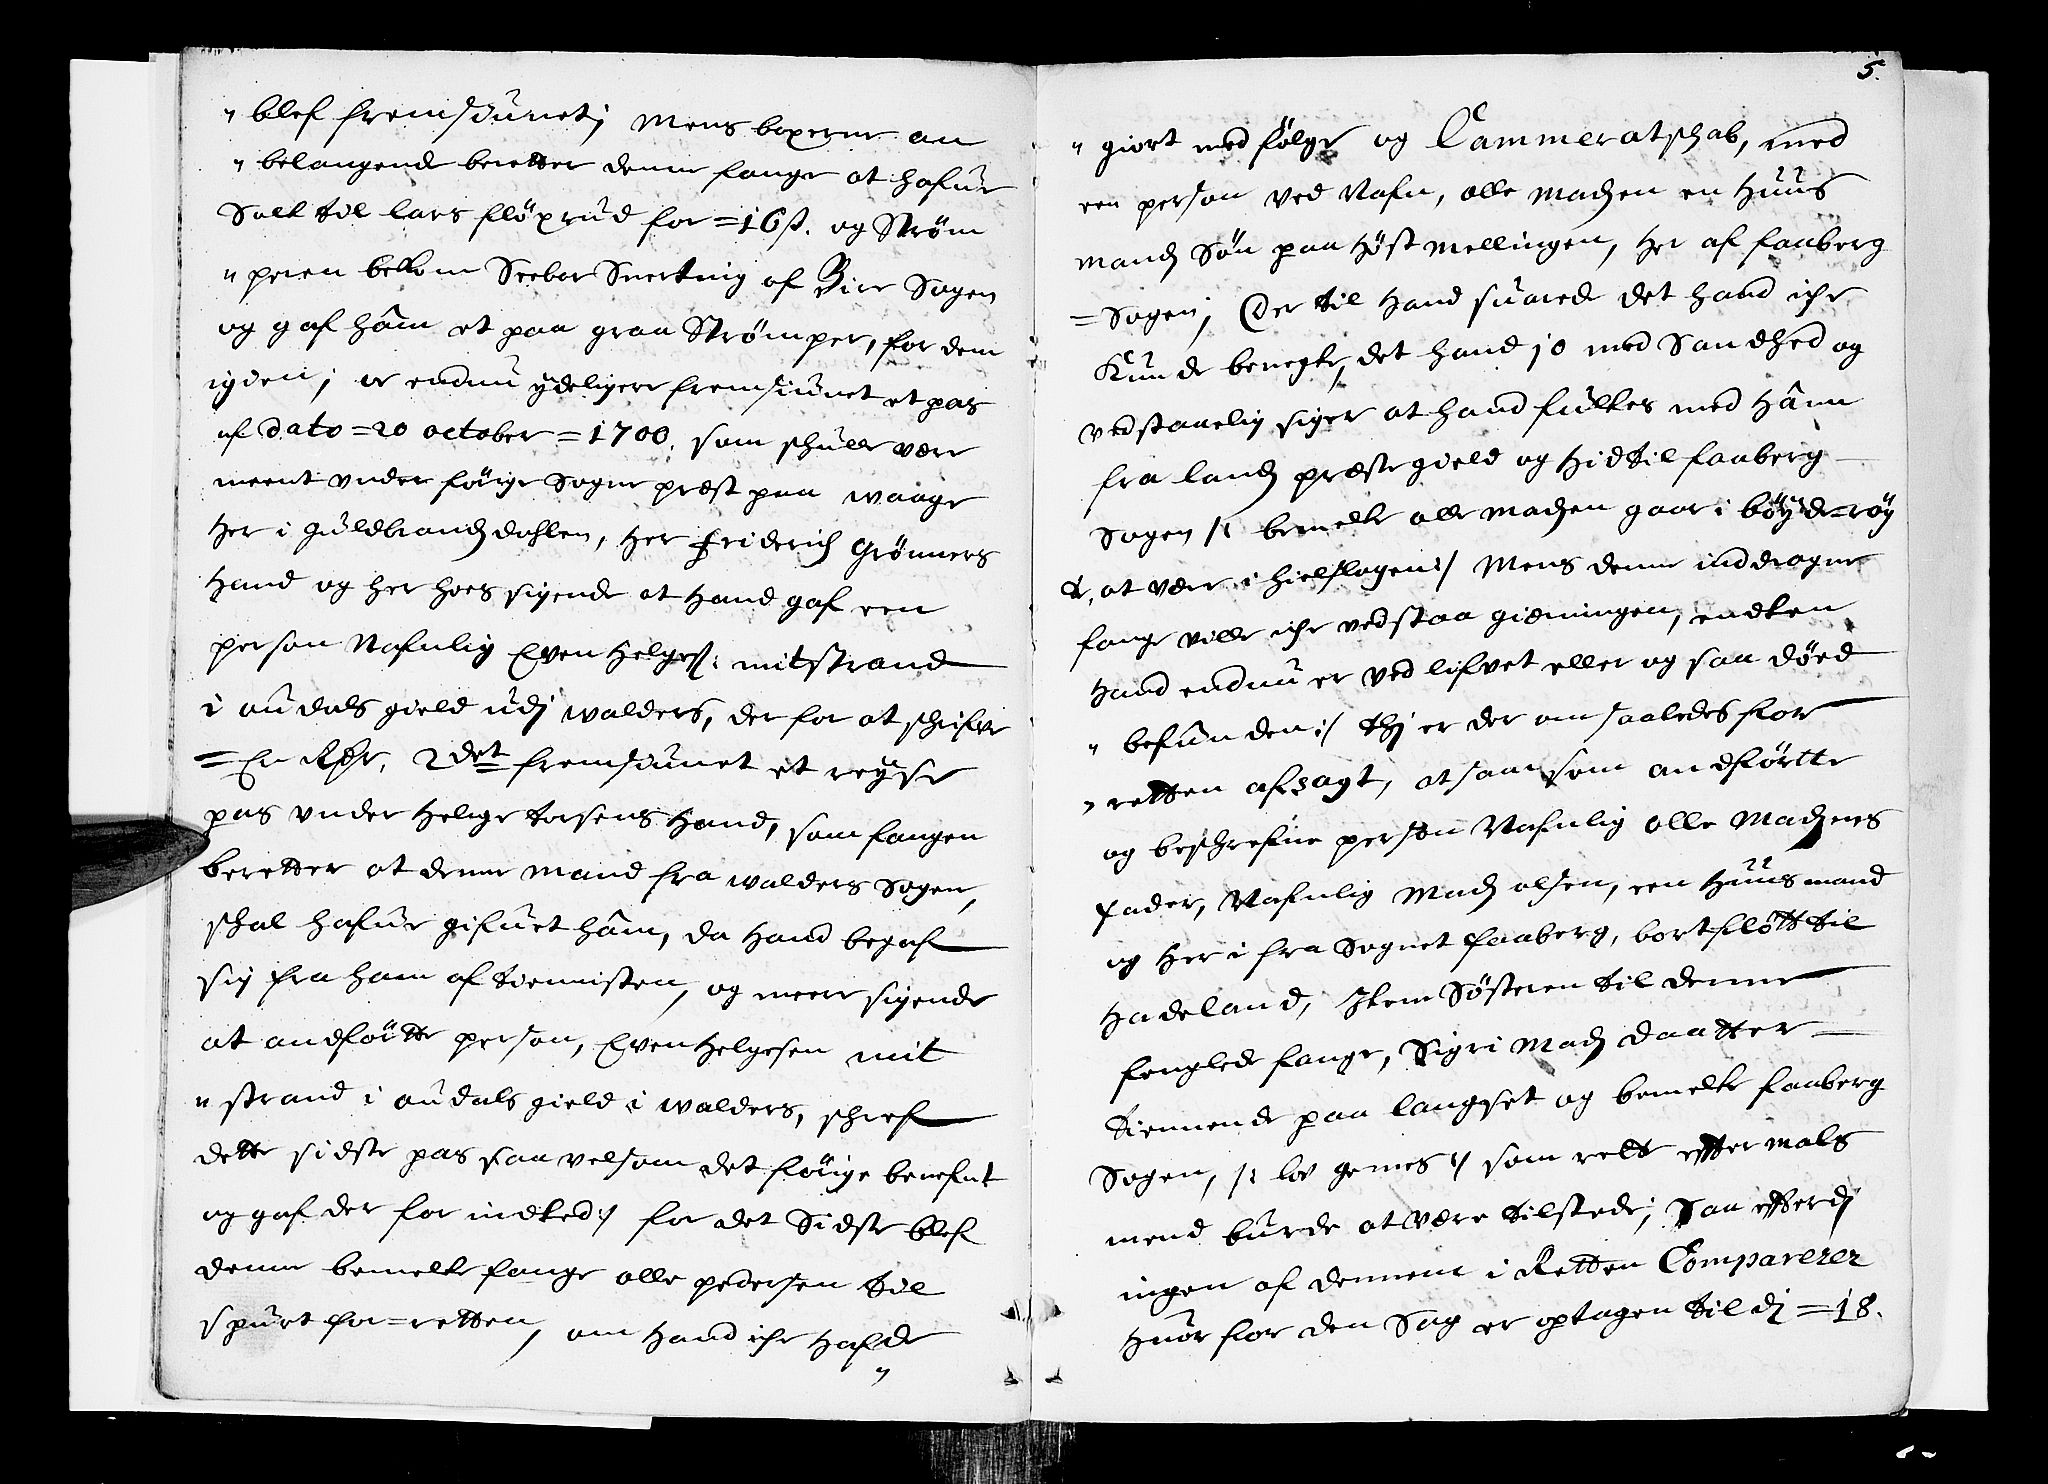 " blef fremsiunet; Mens boxerne an
" belangende beretter denne fange at hafue
Solt til lars flöxrud for =16 s. og Ström
" peren bekom Seebor Snertnig af Birr Sogen
og gaf ham et paa graa Strömper, for dem
igien; er endnu ydeligere fremsiunet et pas
af dato =20 october =1700. som schulle være
meent under förige Sogne præst paa waage
her i guldbrandzdahlen, Her Friderich Grönners
Hand og her hoes sigende at Hand gaf een
person Nafnlig Even Helgess: mitstrand
i audals gield udj walders, der for at schrifue
= En Rdr, 2det fremsiunet et reyse
pas under Helge torsens Hand, som fangen
beretter at denne mand fra walders Sogen,
schal hafue gifuet ham, da Hand begaf
sig fra ham af tiennisten, og meere sigende
at andförtte person, Even Helgesen mit
" strand i audals gield i walders, schref
dette sidste pas saa velsom det förige benefnt
og gaf der for indted :/ for det Sidste blef
denne bemelte fange olle pedersen til
spurt for =retten, om Hand iche Hafde
"
5.
" giort med fölge og Cammeratschab, med
een person ved Nafn, olle madzen en Huus
mandz Sön paa Höst mellingen, her af faaberg
= Sogen; Der til Hand suarede det hand iche
Kunde benegte, det hand jo med Sandhed og
vedstaaelig siger at hand fultes med Ham
fra landz præstegield og Hid til faaberg
Sogen /: bemelte olle madzen gaar i böyde=röy
te, at være i hielslagen :/ Mens denne inddragne
fange ville iche vedstaa gierningen, endten
Hand endnu er ved lifvet eller og saa döed
" befunden :/ thj er der om saaledes for
" retten afsagt, at saa som andförtte
og beschrefne person Nafnlig olle Madzens
fader, Nafnlig Madz olsen, een Huus mand
og Her i fra Sognet faaberg, bortflött til
Hadeland, Item Sösteren til denne
fenglede fange, Sigri Madz daatter
tiennende paa langset og bemelte faaberg
Sogen, /: lov gemes :/ som rett efter mals
mend burde at være tilstede; Saa efterdj
ingen af dennem i Retten Comparerer
Huor for den Sag er optagen til dj =18.